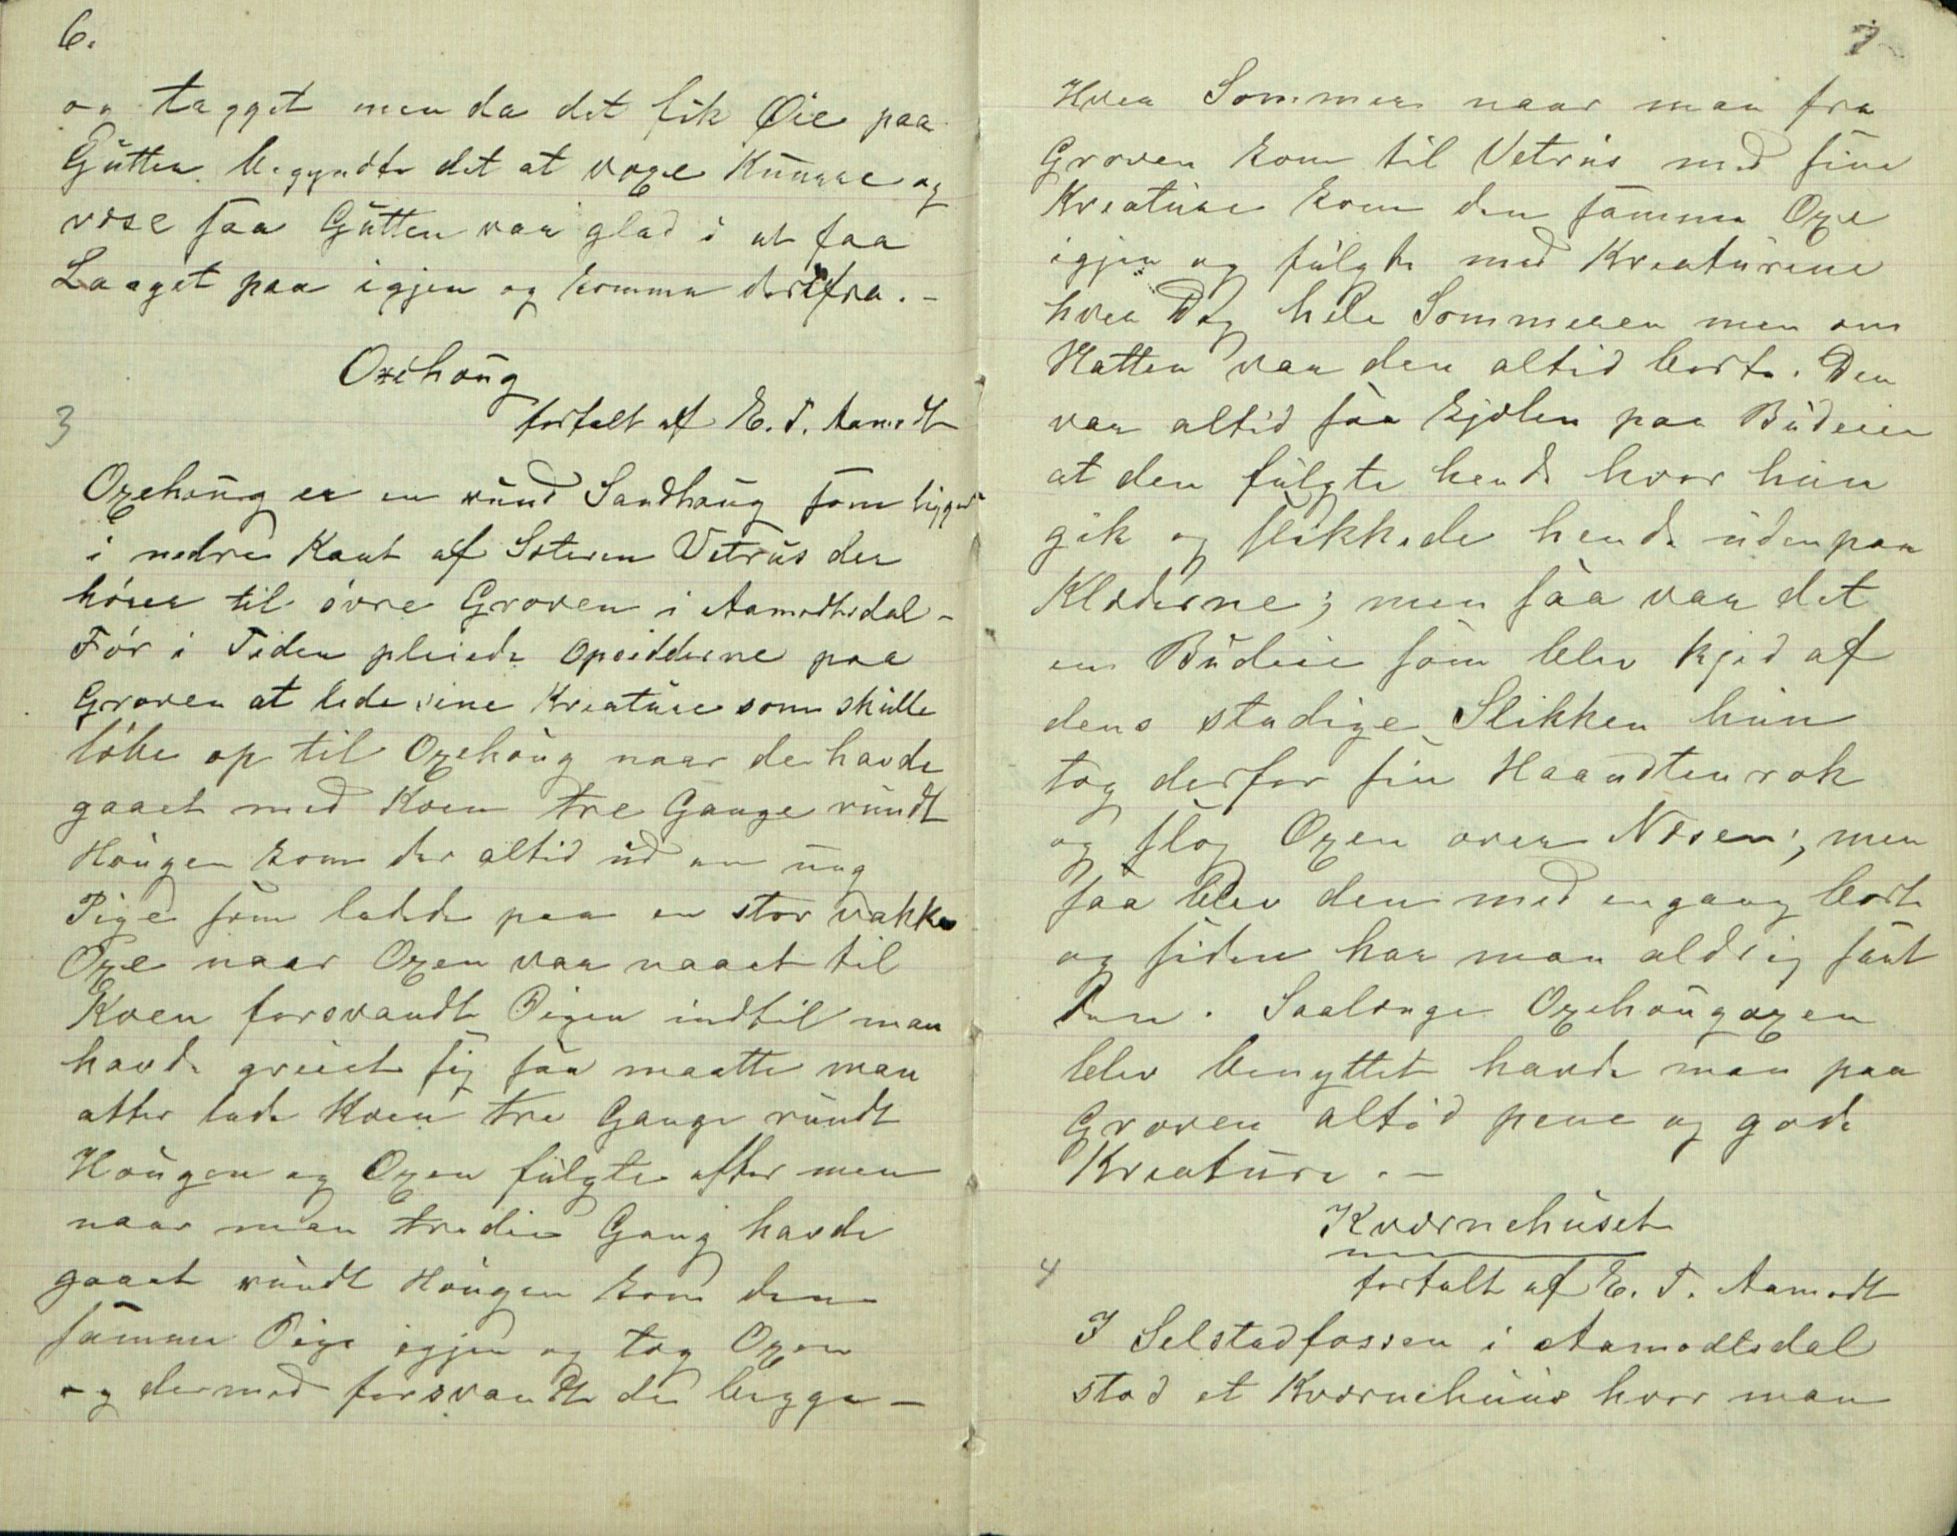 6.
og tagget men da det fik Øie paa
Gutten begyndte det at voxe Knurre og
vise saa Gutten var glad i at faa
Laaget paa igjen og komme derifra. –
Oxehoug
3
fortalt af E. T. Aamodt
Oxehoug er en rund Sandhaug som ligger
i nedre Kant af Sæteren Vetrus der
hører til øvre Groven i Aamodtsdal –
Før i Tiden pleiede Opsidderne paa
Groven at lede sine Kreature som skulle
løbe op til Oxehoug naar de havde
gaaet med Koen tre Gange rundt
Hougen kom der altid ud en ung
Pige som ledede paa en stor vakker
Oxe naar Oxen var naaet til
Koen forsvandt Pigen indtil man
havde greiet sig saa maatte man
atter lede Koen tre Gange rundt
Hougen og Oxen fulgte efter men
naar man tredie Gang havde
gaaet rundt Hougen kom den
samme Pige igjen og tog Oxen
og dermed forsvandt de begge –
7
Hver Sommer naar man fra
Groven kom til Vetrus med sine
Kreature kom den samme Oxe
igjen og fulgte med Kreaturene
hver Dag hele Sommeren men om
Natten var den altid borte. Den
var altid saa kjælen paa Budeien
at den fulgte hende hvor hun
gik og slikkede hende udenpaa
Klæderne; men saa var det
en Budeie som blev kjed af
dens stadige Slikken hun
tog derfor sin Haandtenrok
og slog Oxen over Næsen; men
saa blev den med engang borte
og siden har man aldrig seet
den. Saalænge Oxehougoxen
blev benyttet havde man paa
Groven altid pene og gode
Kreature. –
Kværnehuset
4
fortalt af E. T. Aamodt
I Selstadfossen i Aamodtsdal
stod et Kværnehuus hvor man